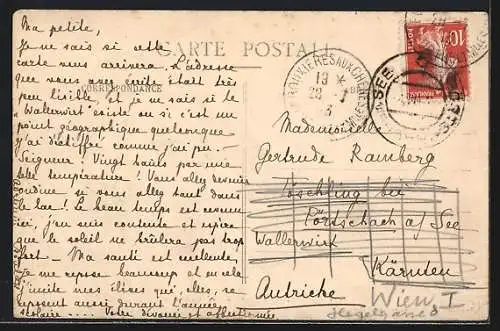 Ma petite,
Je ne sais si cette
carte vous arrivera. L'adresse
que vous avez écrite était très
peu lisible, et je ne sais si le
"Wallerwirt" existe ou si c'est un
point géographique quelconque
j'ai déchiffré comme j'ai pu.
Seigneur! Vingt bains par une
telle température! Vous allez devenir
ondine si vous allez tant dans
le lac! Le beau temps est revenu
ici, j'en suis contente et espère
que le soleil ne brûlera pas trop
fort — Ma santé est meilleure,
je me repose beaucoup et en cela
j'imite mes élèves qui, elles, se
reposent aussi durant l'année
scolaire .... Votre dévouée et affectionnée
CARTE POSTALE
CORRESPONDANCE
10
POSTES
19 *
28 - 7
Mademoiselle
Gertrude Ramberg
Töschling bei
Pörtschach a/ See
Wallerwirt
Kärnten
Autriche
Wien, I
Hegelgasse